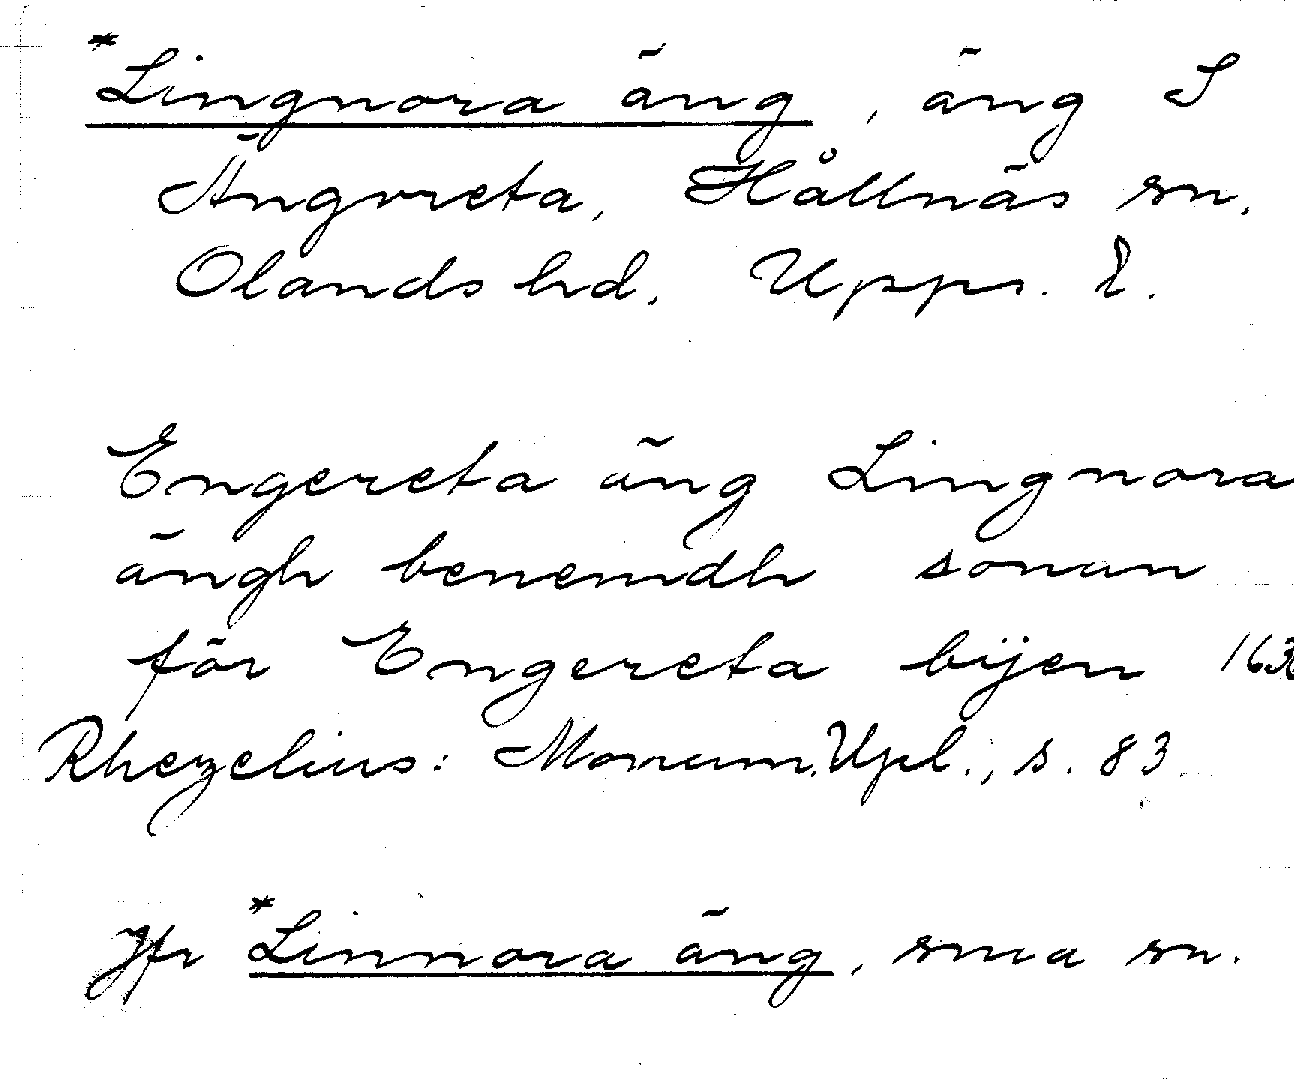 *Lingnora äng, äng S
Ängvreta, Hållnäs sn.
Olands hd. Upps. l.
Engereta äng Lingnora
ängh benemdh sonan
för Engereta bijen
Rhezelius: Monum. Upl., s. 83.
Jfr *Linnora äng, sma sn.